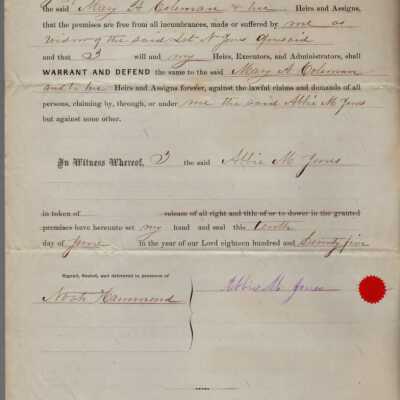 the said Mary A Coleman & her Heirs and Assigns,
that the premises are free from all incumbrances, made or suffered by me as
widow of the said Set N Jones
and that I will and my Heirs, Executors, and Administrators, shall
WARRANT AND DEFEND the same to the said Mary A. Coleman
and to her Heirs and Assigns forever, against the lawful claims and demands of all
persons, claiming by, through, or under me the said Abbie M Jones
but against none other.
In Witness Whereof, I the said Abbie M Jones
in token of release of all right and title of or to dower in the granted
premises have hereunto set my hand and seal this tenth
day of June in the year of our Lord eighteen hundred and Seventy five
Signed, Sealed, and delivered in presence of
Noah Hammond
Abbie M. Jones